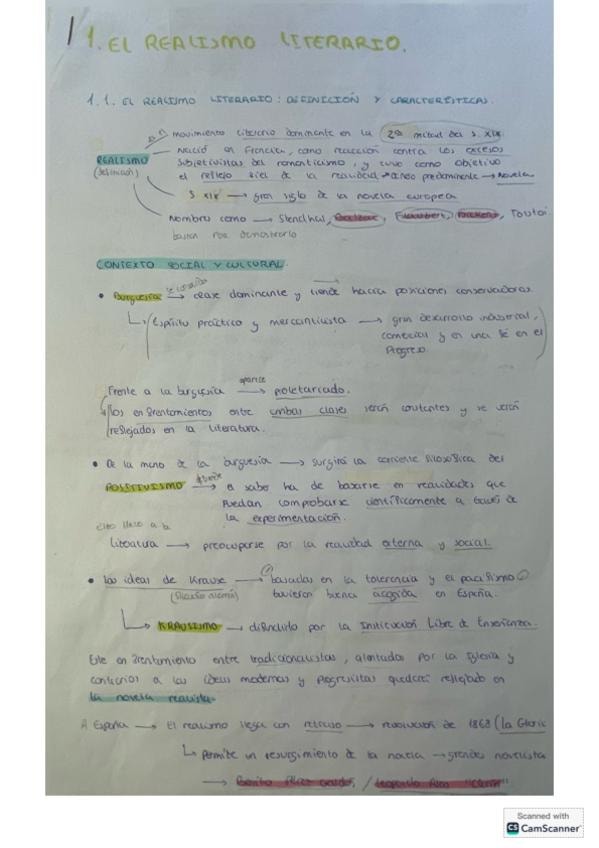 1. EL REALISMO LITERARIO.
1.1. EL REALISMO LITERARIO: DEFINICIÓN Y CARACTERÍSTICAS.
movimiento literario dominante en la 2ª mitad del s. XIX.
Nació en Francia, como reacción contra los excesos
REALISMO subjetivistas del romanticismo, y tuvo como objetivo
(definición) el reflejo fiel de la realidad → género predominante → Novela
S XIX → gran siglo de la novela europea
Nombres como → Stendhal, Balzac, Flaubert, Dickens, Tolstoi
bastan para demostrarlo
CONTEXTO SOCIAL Y CULTURAL.
• Burguesía → clase dominante y tiende hacia posiciones conservadoras.
Espíritu práctico y mercantilista → gran desarrollo industrial,
comercial y en una fé en el
Progreso.
aparece
Frente a la burguesía → proletariado.
los enfrentamientos entre ambas clases serán constantes y se verán
reflejados en la literatura.
• De la mano de la burguesía → surgirá la corriente filosófica del
POSITIVISMO → el saber ha de basarse en realidades que
puedan comprobarse científicamente a través de
la experimentación.
esto llevó a la
literatura → preocuparse por la realidad externa y social.
• Las ideas de Krause → basadas en la tolerancia y el pacifismo
(filósofo alemán) tuvieron buena acogida en España.
KRAUSISMO → difundido por la Institución Libre de Enseñanza.
Este enfrentamiento entre tradicionalistas, alentados por la Iglesia y
contrarios a las ideas modernas y progresistas quedará reflejado en
la novela realista.
A España → El realismo llega con retraso → revolución de 1868 (la Glorio
Permite un resurgimiento de la novela → grandes novelista
→ Benito Pérez Galdós, / Leopoldo Alas "Clarín"
Scanned with
CS CamScanner